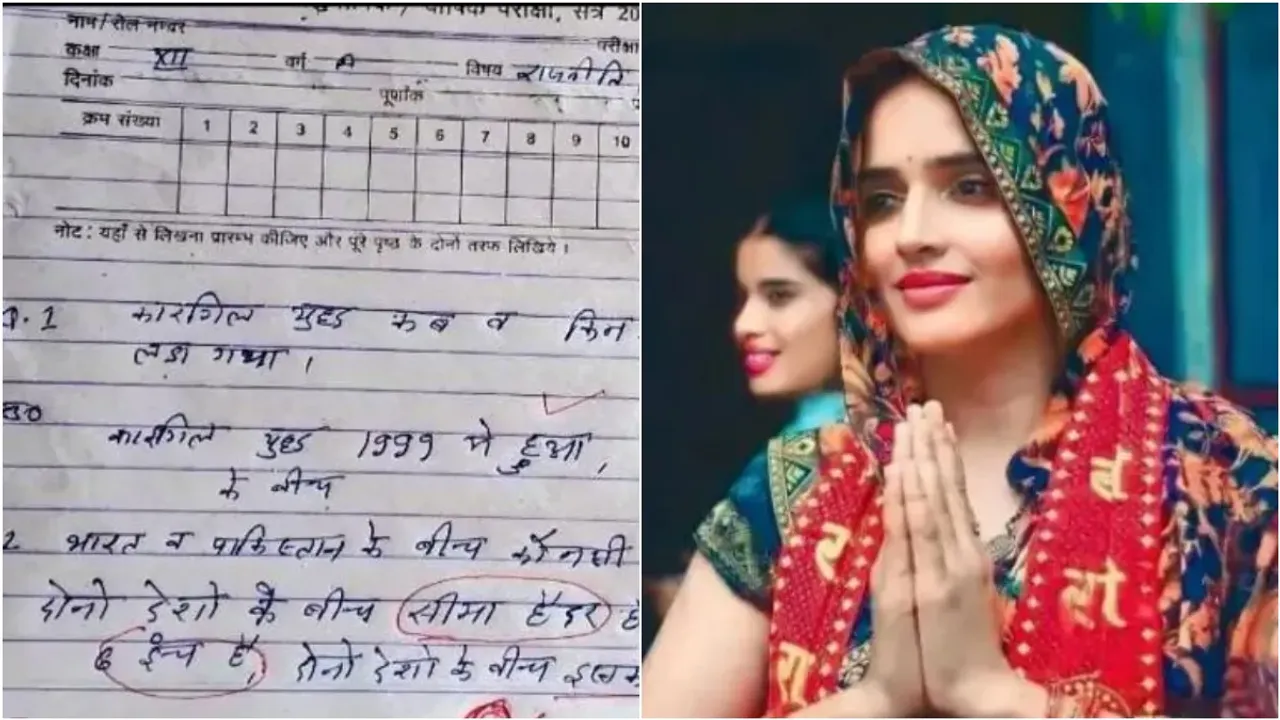 परीक्षा, सत्र 20
नाम/रोल नम्बर
परीक्षा
कक्षा XII वर्ग विषय राजनीति
दिनांक पूर्णांक
क्रम संख्या 1 2 3 4 5 6 7 8 9 10
नोट : यहाँ से लिखना प्रारम्भ कीजिए और पूरे पृष्ठ के दोनों तरफ लिखिये ।
.1 कारगिल युद्ध कब व किन
लडा गया ।
कारगिल युद्ध 1999 मे हुआ,
के बीच
2 भारत व पाकिस्तान के बीच कौनसी
दोनो देशो के बीच सीमा हैदर है
६ इन्च है, दोनो देशो के बीच